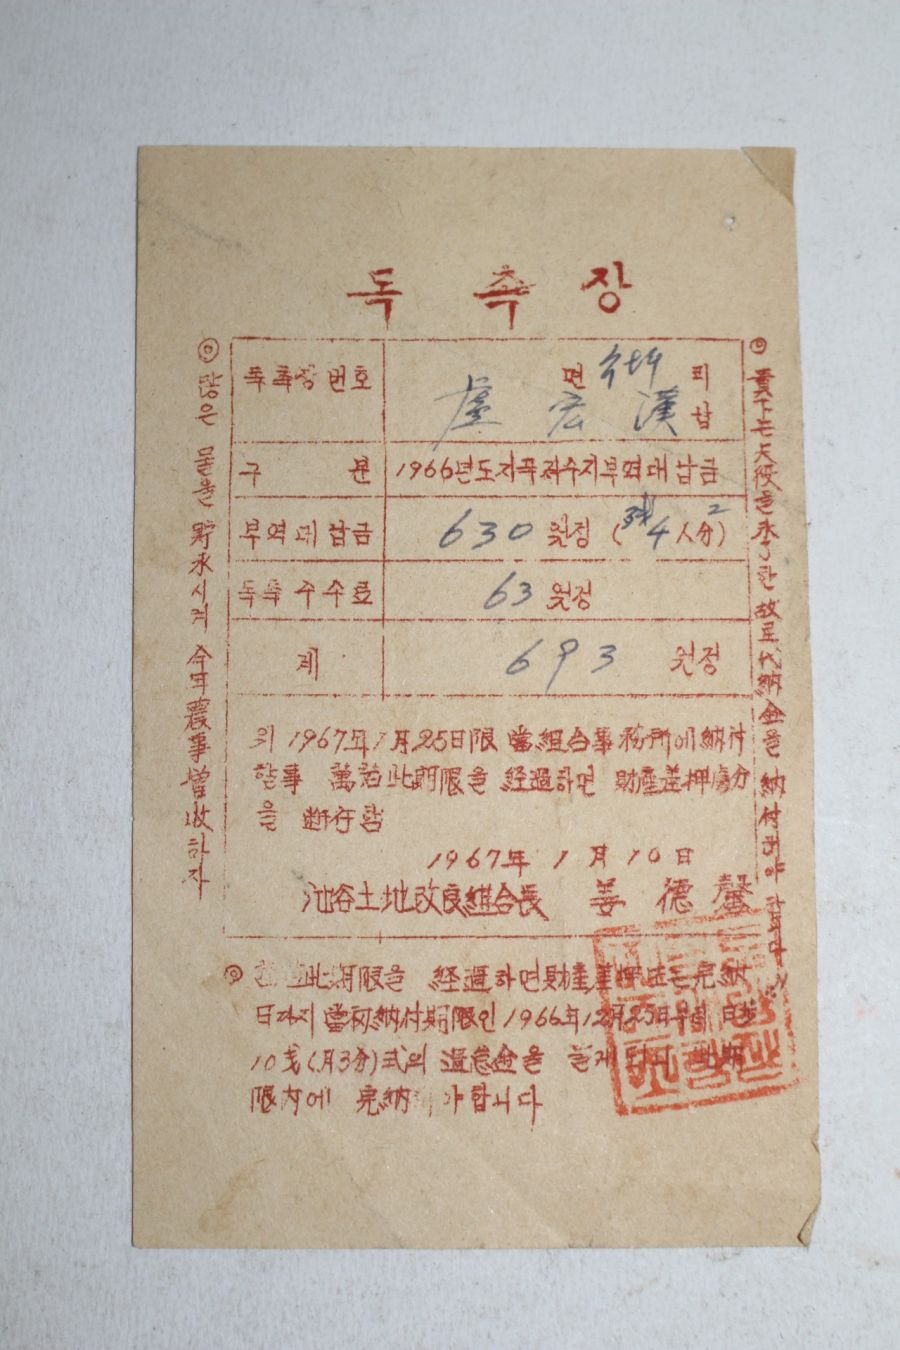 독촉장
독촉장 번호
면 리
盧 宏 漢 납
구 분 1966년도지곡저수지부역대납금
부역대납금 630 원정 ( 4人分)
독촉 수수료 63 원정
계 693 원정
위 1967年 1月25日限 當組合事務所에納付
할事 萬若此期限을 経過하면 財產差押處分
을 断行함
1967年 1月10日
池谷土地改良組合長 姜 德 馨
◎ 此期限을 経過하면財產差押또는完納
日까지 當初納付期限인 1966年12月25日부터 日步
10戋(月3分)式의 過怠金을 물게 되니 此期
限内에 完納 야합니다
◎ 貴下는 夫役을 未了한 故로 代納金을 納付하여야 합니다
◎ 많은 물을 貯水시켜 今年農事增收하자